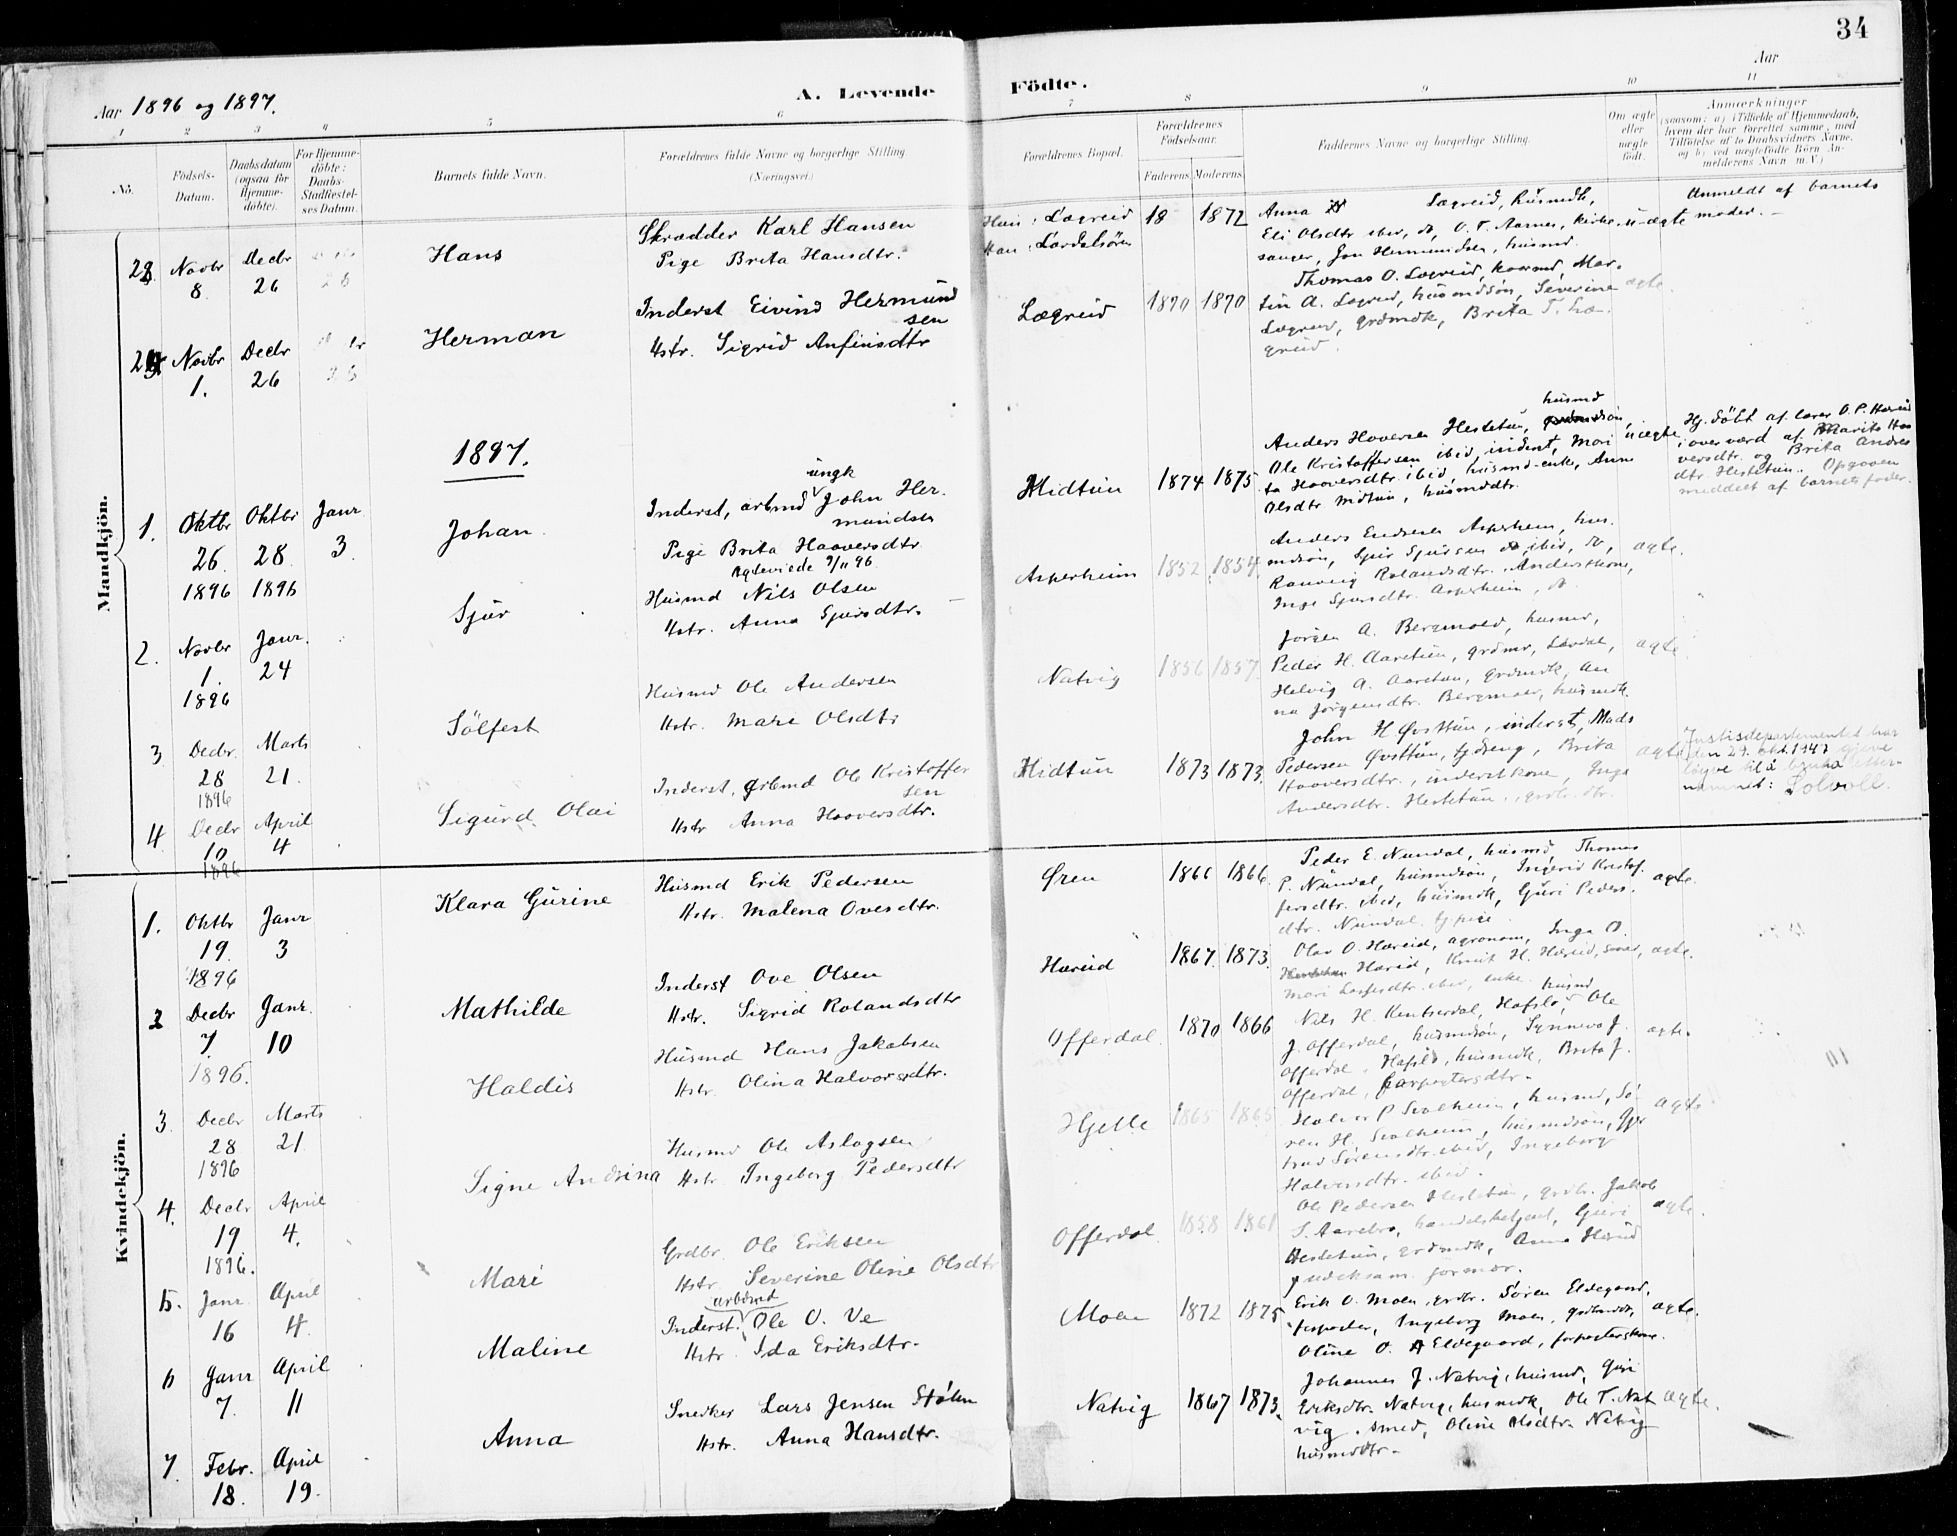 34
Aar 1896 og 1897.
A. Levende Födte.
Aar
1 2 3 4 5 6 7 8 9 10 11
No.
Födsels-Datum.
Daabsdatum (ogsaa for Hjemme-döbte).
For Hjemme-döbte: Daabs-Stadfæstel-ses Datum.
Barnets fulde Navn.
Forældrenes fulde Navne og borgerlige Stilling
(Næringsvei.)
Forældrenes Bopæl.
Forældrenes Födselsaar.
Faderens. Moderens.
Faddernes Navne og borgerlige Stilling.
Om ægte eller uægte födt.
Anmærkninger
(saasom: a) i Tilfælde af Hjemmedaab,
hvem der har forrettet samme, med
Tilföielse af to Daabsvidners Navne,
og b) ved uægtefödte Börn An-
melderens Navn m. V.)
Mandkjön.
Novbr 8. Decbr 26
Hans
Skrædder Karl Hansen
Pige Brita Hansdtr.
Hans: Lægreid
Lærdalsören
18 1872
Anna Lægreid, husmdk,
Eli Olsdtr ibid, O. T. Aarnes, kirke-
sanger, Jon Hermundsen, husmd.
u-ægte
Anmeldt af barnets
moder. -
Novbr 1. Decbr 26
Herman
Inderst Eivind Hermund
sen
Hstr. Sigrid Anfinsdtr
Lægreid
1870 1870
Thomas O. Lægreid, Mar-
tin A. Lægreid, husmdsön, Severine
Lægreid, grdmdk, Brita T. Læ-
greid.
ægte.
1897.
1. Oktbr 26. 1896 Oktbr 28 1896 Janr 3.
Johan
ungk
Inderst, arbmd John Her-
mundsen
Pige Brita Haaversdtr
Ægteviede 9/11 96.
Midtun
1874 1875
husmd
Anders Haaversen Hestetun,
Ole Kristoffersen ibid, inderst, Mari-
ta Haaversdtr. ibid husmd-enke, Anne
Olsdtr Midtun, husmddtr.
uægte
Hj. döbt af lærer O. P. Hæreid
i overværd af Marita Haa
versdtr. og Brita Andres
dtr Hestetun. Opgaven
meddelt af barnets fader.
2. Novbr 1. 1896 Janr. 24
Sjur
Husmd Nils Olsen
Hstr. Anna Sjursdtr.
Asperheim
1852 1854.
Anders Endresen Asperheim, hus-
mdsön, Sjur Sjursen ibid,
Ranveig Rolandsdtr. Anderskone,
Inga Sjursdtr. Asperheim,
ægte.
3 Decbr. 28 1896 Marts 21.
Sölfest
Husmd Ole Andersen
Hstr. Mari Olsdtr
Natvig
1856 1857
Jörgen A. Bergmoed, husmd,
Peder H. Aaretun, grdmd, Lærdal,
Helvig A. Aaretun, grdmdk, An
na Jörgensdtr. Bergmoed, husmdk.
ægte
4 Decbr 10 1896 April 4
Sigurd Olai
Inderst, Arbmd Ole Kristoffer
sen
Hstr Anna Haaversdtr.
Midtun
1873 1873.
John H Øvsttun, inderst, Mads
Pedersen Øvsttun, tjdreng, Brita
Haaversdtr., inderstkone, Inga
Andersdtr. Hestetun,
ægte
Justisdepartementet har
den 29. okt. 1947 gjeve
löyve til å bruka etter-
namnet: Solvoll.
Kvindekjön.
1. Oktbr 19. 1896 Janr 3
Klara Gurine
Husmd Erik Pedersen
Hstr. Malena Ovesdtr.
Øren
1866 1866.
Peder E. Nundal, husmd, Thomas
P. Nundal, husmdsön, Ingerid Kristof-
fersdtr. ibid, husmdk, Guri Peders-
dtr. Nundal, tj.pige.
ægte.
2 Decbr 7 1896. Janr. 10
Mathilde
Inderst Ove Olsen
Hstr. Sigrid Rolandsdtr
Hæreid
1867. 1873.
Olav O. Hæreid, agronom, Inga O.
Hæreid, Knut H. Hæreid, smed,
Mari Lassesdtr. ibid, enke.
ægte.
3. Decbr 28 1896 Marts 21
Haldis
Husmd Hans Jakobsen
Hstr. Olina Halvorsdtr.
Offerdal.
1870 1866
husmd
Nils H. Hafslo, Ole
J. Offerdal, husmdsön, Synneva J.
Offerdal, Hafslo, husmdk, Brita J.
Offerdal,
ægte.
4. Decbr 19 1896. April 4.
Signe Andrina
Husmd Ole Aslagsen
Hstr. Ingeborg Pedersdtr
Hjelle
1865 1865
Halvor P Svalheim, husmd, Sö-
ren H. Svalheim, husmdsön, Gjer
trud Sörensdtr. ibid, Ingeborg
Halvorsdtr. ibid.
ægte
5. Janr 16 April 4.
Mari
Grdbr. Ole Eriksen
Hstr. Severine Oline Olsdtr
Offerdal
1858 1861
Ole Pedersen Hestetun, grdbr. Jakob
S. Aarebro, handelsbetjent, Guri
Hestetun, grdmdk, Anna Hæreid
jordmor.
ægte.
6 Janr 7. April 11
Maline
arbmd
Inderst. Ole O. Ve
Hstr. Ida Eriksdtr.
Moen
1872 1875
Erik O. Moen, grdbr. Sören Eldegaard,
forpagter, Ingeborg Moen,
Oline O. Eldegaard, forpagterskone.
ægte.
7. Febr. 18. April 19.
Anna
Snedker Lars Jensen Stölen
Hstr. Anna Hansdtr.
Natvig
1867 1873.
Johannes J. Natvig, husmd, Guri
Eriksdtr. Natvig, husmdk, Ole T. Nat
vig, smed, Oline Olsdtr. Natvig
husmddtr.
ægte.